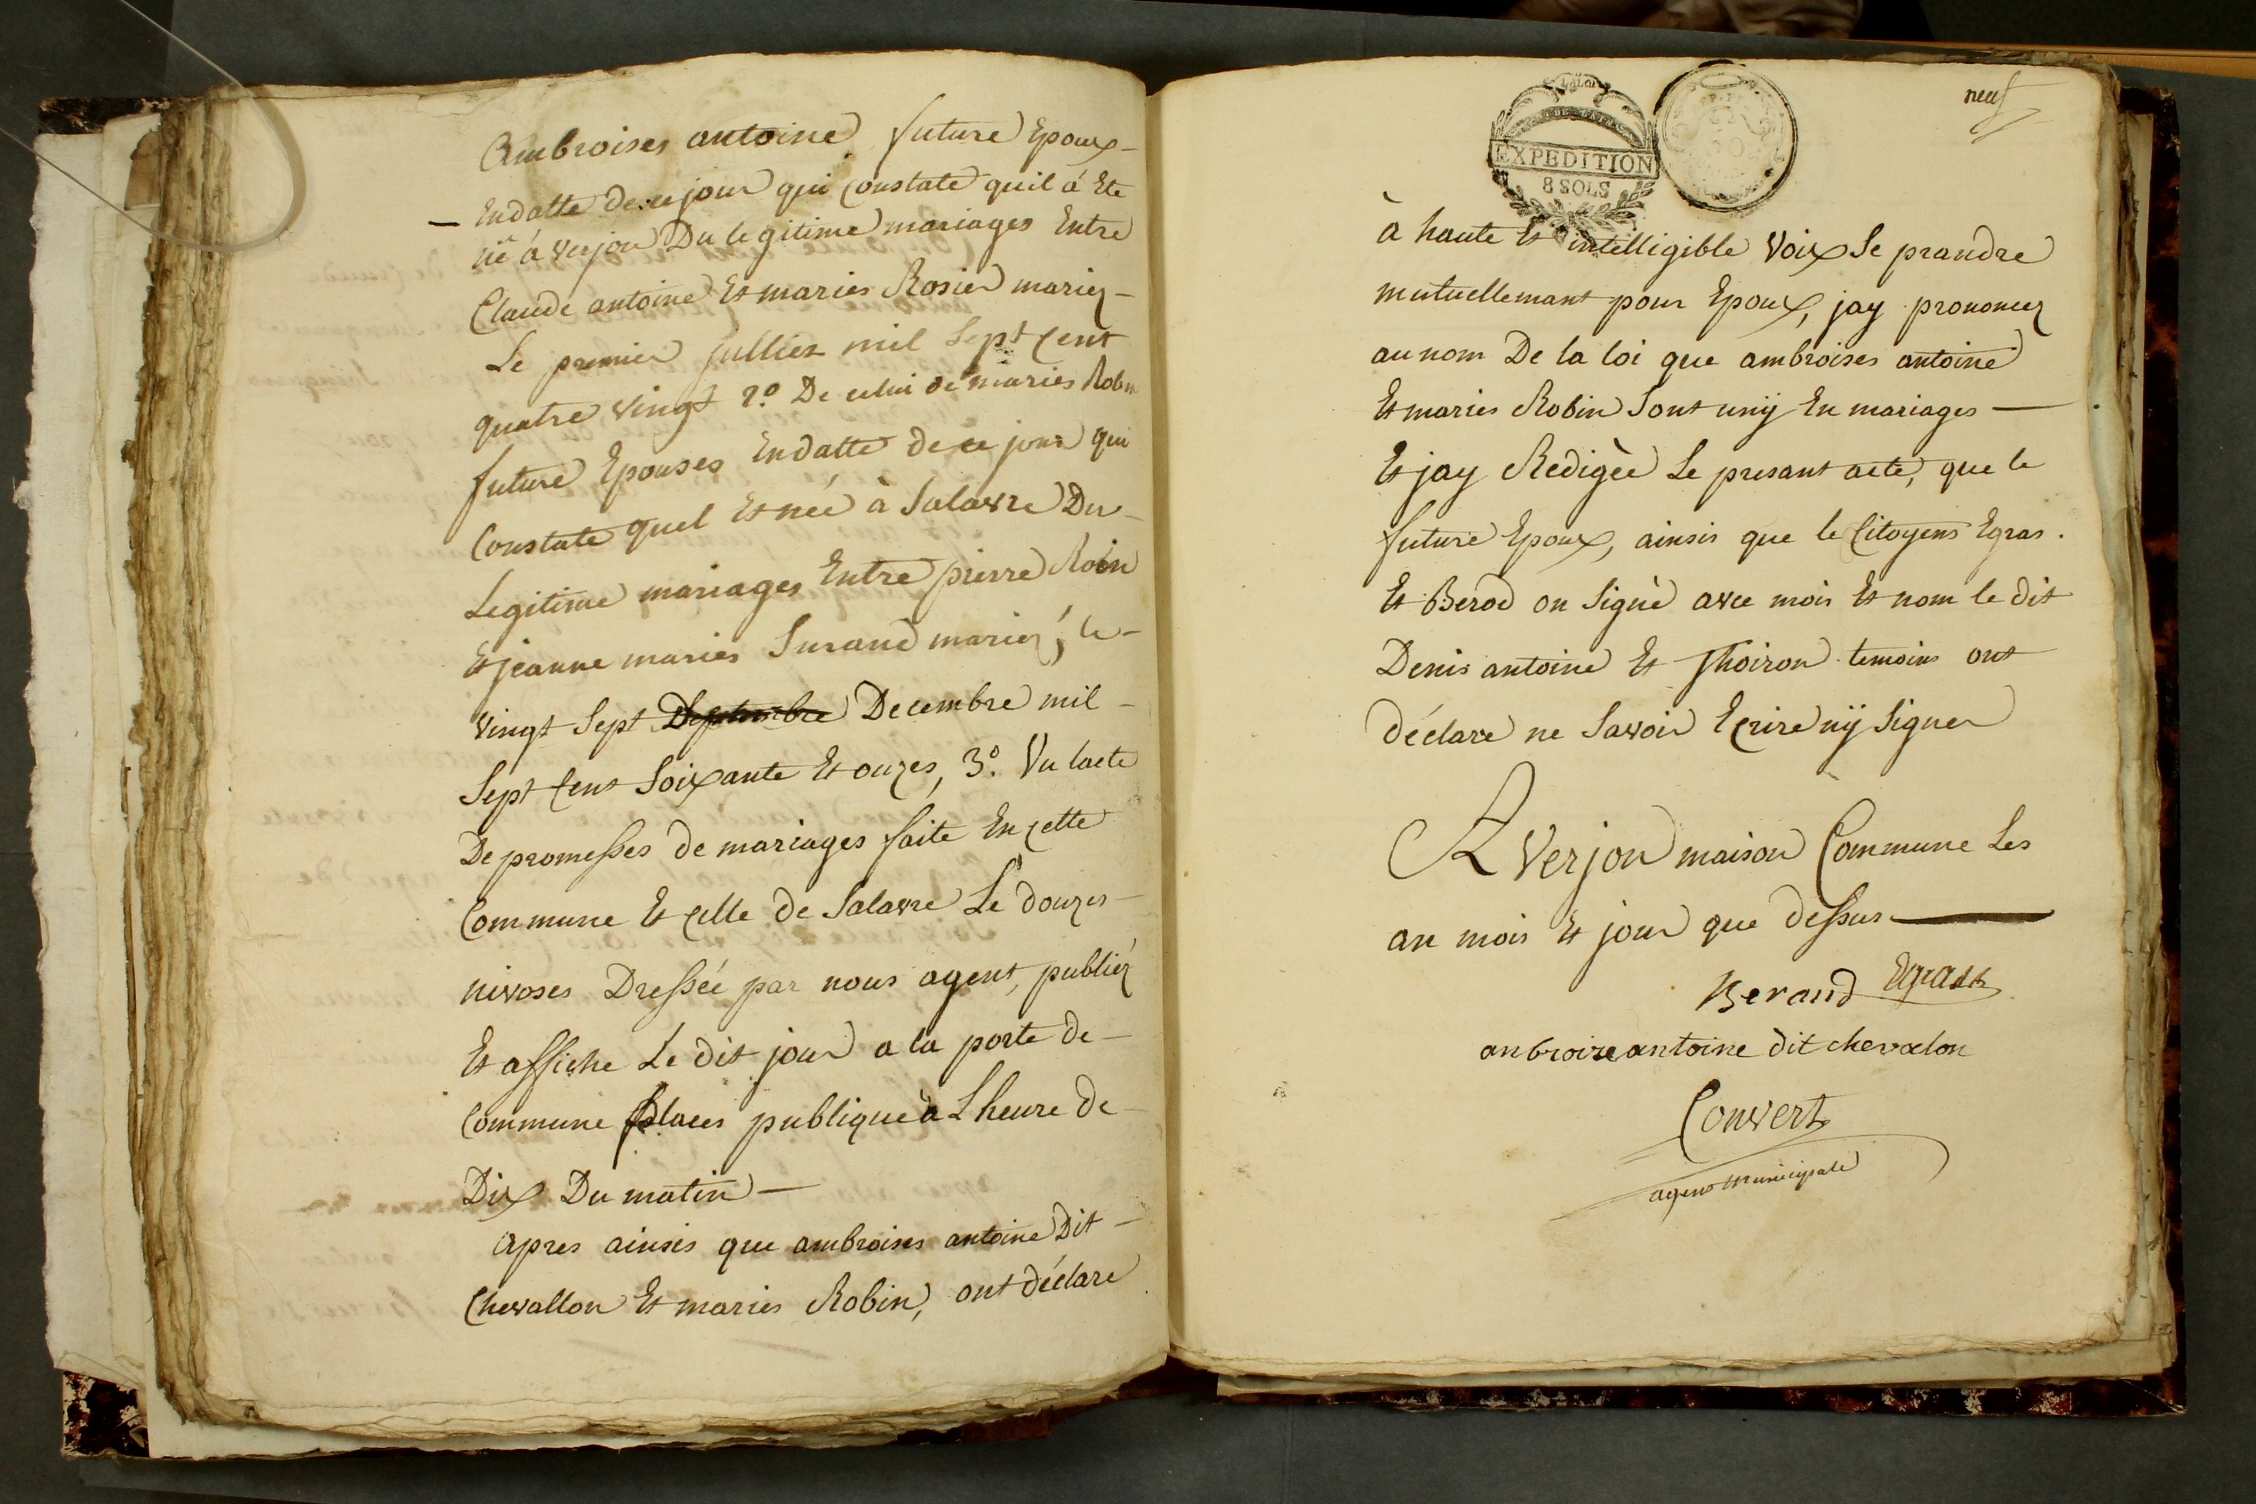 Ambroises antoine future Epoux -
- Endatte de ce jour qui Constate quil á Ete
né á verjon Du legitime mariages Entre
Claude antoine Et maries Rosier mariez -
Le premier Julliet mil Sept Cent
quatre vingt 2º. De celui de maries Robin
future Epouses Endatte de ce jour qui
Constate quel Et née à Salavre Du -
Legitime mariages Entre pierre Robin
Et jeanne maries Surand mariez, le -
vingt Sept Decembre mil -
Sept Cent Soixante Et onzes, 3º. Vu lacte
De promesses de mariages faite En cette
Commune Et celle de Salavre Le douzes -
nivoses Dressée par nous agent, publiéz
Et affiche Le dit jour a la porte de -
Commune places publique à Lheure de -
Dix Du matin -
apres ainsis que ambroises antoine Dit -
Chevallon Et maries Robin, ont déclare
neuf
LA LOI
EXPEDITION
8 SOLS
à haute Et intelligible Voix Se prandre
mutuellemant pour Epoux, jay prononcez
au nom De la loi que ambroises antoine
Et maries Robin Sont unij En mariages -
Et jay Redigèe Le presant acte, que le
future Epoux, ainsis que le Citoyens Egras.
Et Berod on Signè avec mois Et nom le dit
Denis antoine Et Thoiron temoins ont
déclare ne Savoir Ecrire nij Signer
A Verjon maison Commune Les
an mois Et jour que dessus -
Beraud Egras
anbroise antoine dit chevalon
Convert
agent Municipale